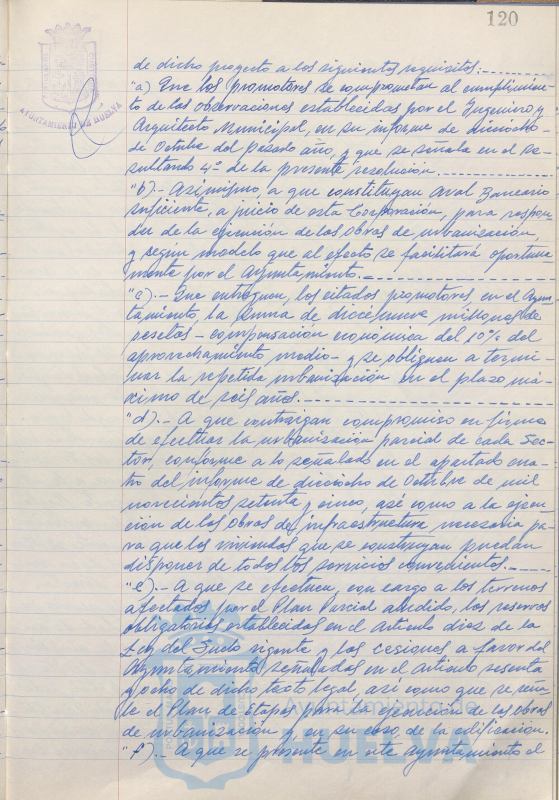 120
AYUNTAMIENTO DE HUELVA
de dicho proyecto a los siguientes requisitos:
"a) Que los promotores se comprometan al cumplimien-
to de las observaciones establecidas por el Ingeniero y
Arquitecto Municipal, en su informe de dieciocho
de Octubre del pasado año, y que se señala en el Re-
sultando 4º de la presente resolución.
"b).- Asimismo, a que constituyan Aval Bancario
suficiente, a juicio de esta Corporación, para respon-
der de la ejecución de las obras de urbanización,
y según modelo que al efecto se facilitará oportuna
mente por el Ayuntamiento.
"c).- Que entreguen, los citados promotores, en el Ayun-
tamiento, la suma de diecinueve millones de
pesetas - compensación económica del 10% del
aprovechamiento medio - y se obliguen a termi-
nar la repetida urbanización en el plazo má-
ximo de seis años.
"d).- A que contraigan compromiso en firme
de efectuar la urbanización parcial de cada Sec-
tor, conforme a lo señalado en el apartado cua-
tro del informe de dieciocho de Octubre de mil
novecientos setenta y cinco, así como a la ejecu-
ción de las obras de infraestructura necesaria pa-
ra que las viviendas que se construyan puedan
disponer de todos los servicios convenientes.
"e).- A que se efectuen, con cargo a los terrenos
afectados por el Plan Parcial aludido, las reservas
obligatorias establecidas en el artículo diez de la
Ley del Suelo vigente y las cesiones a favor del
Ayuntamiento señaladas en el artículo sesenta
y ocho de dicho texto legal, así como que se seña-
le el Plan de Etapas para la ejecución de las obras
de urbanización y, en su caso, de la edificación.
"f).- A que se presente en este Ayuntamiento el
Ayuntamiento de
HUELVA